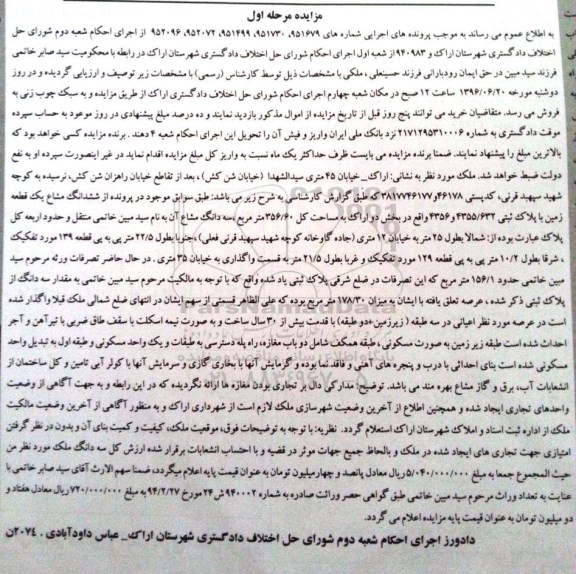 مزایده مرحله اول
به اطلاع عموم می رساند به موجب پرونده های اجرایی شماره های ۹۵۱۶۷۹، ۹۵۱۷۳۰، ۹۵۱۴۹۹، ۹۵۲۰۷۲، ۹۵۲۰۹۶ از اجرای احکام شعبه دوم شورای حل
اختلاف دادگستری شهرستان اراک و ۹۴۰۹۸۳ از شعبه اول اجرای احکام شورای حل اختلاف دادگستری شهرستان اراک در رابطه با محکومیت سید صابر خاتمی
فرزند سید مبین در حق ایمان رودبارانی فرزند حسینعلی ، ملکی با مشخصات ذیل توسط کارشناس (رسمی) با مشخصات زیر توصیف و ارزیابی گردیده و در روز
دوشنبه مورخه ۱۳۹۶/۰۶/۲۰ ساعت ۱۲ صبح در مکان شعبه چهارم اجرای احکام شورای حل اختلاف دادگستری اراک از طریق مزایده و به سبک چوب زنی به
فروش می رسد. متقاضیان خرید می توانند پنج روز قبل از تاریخ مزایده از اموال مذکور بازدید نمایند و ده درصد مبلغ پیشنهادی در روز موعود به حساب سپرده
موقت دادگستری به شماره ۲۱۷۱۲۹۵۳۱۰۰۰۶ نزد بانک ملی ایران واریز و فیش آن را تحویل این اجرای احکام شعبه ۴ دهند . برنده مزایده کسی خواهد بود که
بالاترین مبلغ را پیشنهاد نمایند. ضمنا برنده مزایده می بایست ظرف حداکثر یک ماه نسبت به واریز کل مبلغ مزایده اقدام نماید در غیر اینصورت سپرده او به نفع
دولت ضبط خواهد شد. ملک مورد نظر به نشانی: اراک_ خیابان ۴۵ متری سیدالشهدا (خیابان شن کش) ، بعد از تقاطع خیابان راهزان شن کش، نرسیده به کوچه
شهید سپهبد قرنی، کدپستی ۴۶۱۷۸و۳۸۱۷۷۴۶۱۷۷ که طبق گزارش کارشناسی به شرح زیر می باشد: طبق سوابق موجود در پرونده از ششدانگ مشاع یک قطعه
زمین با پلاک ثبتی ۴۳۵۵/۶۳۲ و ۴۳۵۶ واقع در بخش دو اراک به مساحت کل ۳۵۶/۶۰ متر مربع ،سه دانگ مشاع آن به نام سید مبین خاتمی منتقل و حدود اربعه کل
پلاک عبارت بوده از: شمالا بطول ۲۵ متر به خیابان ۱۲ متری (جاده گاوخانه کوچه شهید سپهبد قرنی فعلی) ،جنوبا بطول ۲۲/۵ متر پی به پی قطعه ۱۳۹ مورد تفکیک
، شرقا بطول ۱۰/۲ متر پی به پی قطعه ۱۲۹ مورد تفکیک و غربا بطول ۲۱/۵ متر به قسمت واگذاری به خیابان ۳۵ متری . در حال حاضر تصرفات ورثه مرحوم سید
مبین خاتمی حدود ۱۵۶/۱ متر مربع که این تصرفات در ضلع شرقی پلاک ثبتی یاد شده واقع که با توجه به مالکیت مرحوم سید مبین خاتمی به مقدار سه دانگ از
پلاک ثبتی ذکر شده ، عرصه تعلق یافته با ایشان به میزان ۱۷۸/۳۰ متر مربع بوده که علی الظاهر قسمتی از سهم ایشان در انتهای ضلع شمالی ملک قبلا واگذار شده
است در عرصه مورد نظر اعیانی در سه طبقه ( زیرزمین+دو طبقه) با قدمت بیش از ۳۰ سال ساخت و به صورت نیمه اسکلت با سقف طاق ضربی با تیرآهن و آجر
احداث شده است طبقه زیر زمین به صورت مسکونی ، طبقه همکف شامل دو باب مغازه، راه پله دسترسی به طبقات و یک واحد مسکونی و طبقه اول به تبدیل واحد
مسکونی شده است بنای احداثی با درب و پنجره های آهنی و فاقد نما بوده و گرمایش آنها با بخاری گازی و سرمایش آنها با کولر آبی تامین و کل ساختمان از
انشعابات آب، برق و گاز مشاع بهره مند می باشد. توضیح: مدارکی دال بر تجاری بودن مغازه ها ارائه نگردیده که در این رابطه و به جهت آگاهی از وضعیت
واحدهای تجاری ایجاد شده و همچنین اطلاع از آخرین وضعیت شهرسازی ملک لازم است از شهرداری اراک و به منظور آگاهی از آخرین وضعیت مالکیت
ملک از اداره ثبت اسناد و املاک شهرستان اراک استعلام گردد. نظریه: با توجه به توضیحات فوق، موقعیت ملک، کیفیت و کمیت بنای آن و بدون در نظر گرفتن
امتیازی جهت تجاری های ایجاد شده در ملک و بالحاظ جمیع جهات موثر در قضیه و با احتساب انشعابات برقرار شده ارزش کل سه دانگ ملک مورد نظر من
حیث المجموع جمعا به مبلغ ۵/۰۴۰/۰۰۰/۰۰۰ ریال معادل پانصد و چهارمیلیون تومان به عنوان قیمت پایه اعلام میگردد، ضمنا سهم الارث آقای سید صابر خاتمی با
عنایت به تعداد وراث مرحوم سید مبین خاتمی طبق گواهی حصر وراثت صادره به شماره ۹۴۰۰۰۲ ش ۲۴ مورخ ۹۴/۲/۲۷ به مبلغ ۷۲۰/۰۰۰/۰۰۰ ریال معادل هفتاد و
دو میلیون تومان به عنوان قیمت پایه مزایده اعلام می گردد.
دادورز اجرای احکام شعبه دوم شورای حل اختلاف دادگستری شهرستان اراک_ عباس داودآبادی . ۲۰۷۴ن